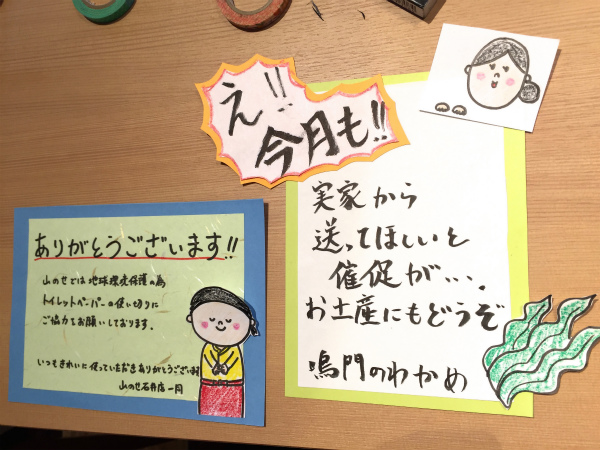 え!!
今月も!!
実家から
送ってほしいと
催促が・・・.
お土産にもどうぞ
鳴門のわかめ
ありがとうございます!!
山のせでは地球環境保護の為
トイレットペーパーの使い切りに
ご協力をお願いしております.
いつもきれいに使っていただきありがとうございます
山のせ石井店一同